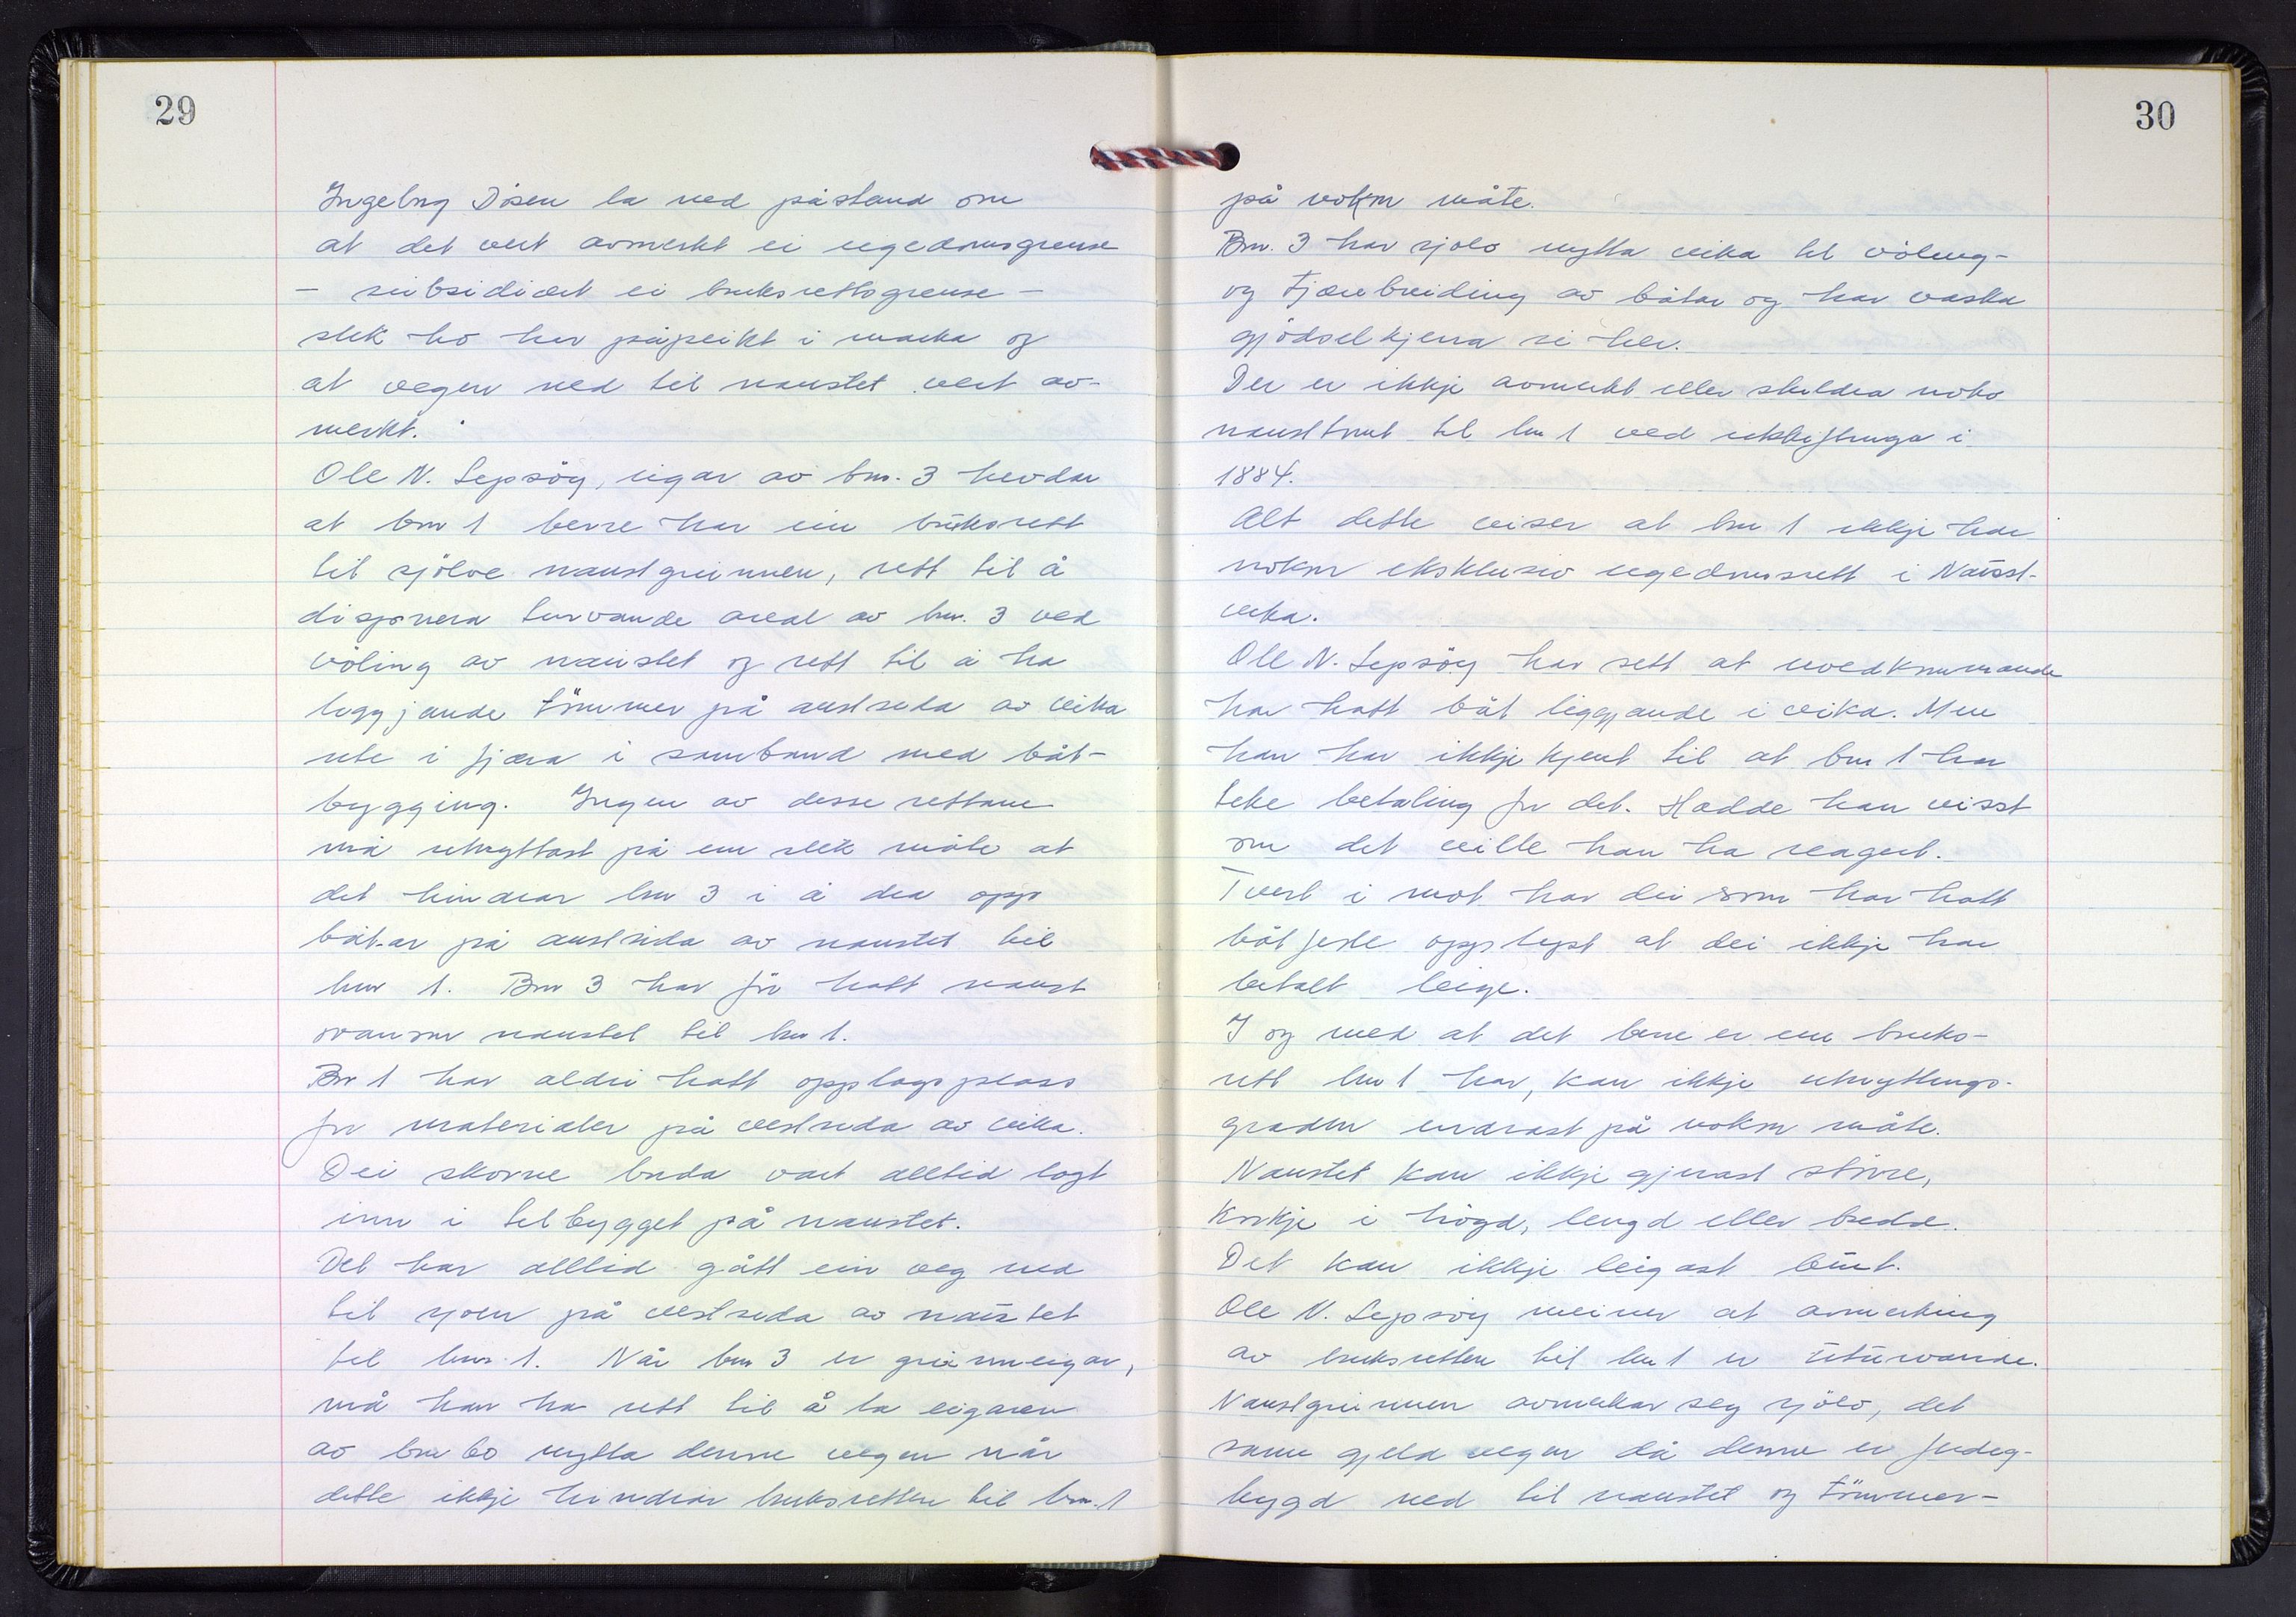 29
Ingebrg Døsen la ned påstand om
at det vert avmerkt ei eigedomsgrense
- subsidiært ei bruksrettsgrense -
slik ho har påpeikt i marka og
at vegen ned til naustet vert av-
merkt.
Ole N. Lepsöy, eigar av bnr. 3 hevdar
at bnr 1 berre har ein bruksrett
til sjölve naustgrunnen, rett til å
disponera turvande areal av bnr. 3 ved
völing av naustet og rett til å ha
liggjande tömmer på austsida av vika
ute i fjæra i samband med båt-
bygging. Ingen av desse rettane
må utnyttast på ein slik måte at
det hindrar bnr 3 i å dra opp
båtar på austsida av naustet til
bnr 1. Bnr 3 har för hatt naust
ovanom naustet til bnr 1.
Bnr 1 har aldri hatt opplagsplass
for materialer på vestsida av vika.
Dei skorne borda vart alltid lagt
inn i tilbygget på naustet.
Det har alltid gått ein veg ned
til sjoen på vestsida av naustet
til bnr. 1. Når bnr 3 er grunneigar,
må han ha rett til å la eigaren
av bnr 60 nytta denne vegen når
dette ikkje hindrar bruksretten til bnr. 1
30
på nokon måte.
Bnr. 3 har sjølv nytta vika til völing-
og tjærebreiding av båtar og har vaska
gjödselkjerra si her.
Det er ikkje avmerkt eller skildra noko
nausttomt til bnr 1 ved utskiftinga i
1884.
Alt dette viser at bnr 1 ikkje har
nokon eksklusiv eigedomsrett i Naust-
vika.
Ole N. Lepsöy har sett at uvedkommande
har hatt båt liggjande i vika. Men
han har ikkje kjent til at bnr 1 har
teke betaling for det. Hadde han visst
om det ville han ha reagert.
Tvert i mot har dei som har hatt
båt der opplyst at dei ikkje har
betalt leige.
I og med at det berre er ein bruks-
rett bnr 1 har, kan ikkje utnyttings-
graden endrast på nokon måte.
Naustet kan ikkje gjerast större,
korkje i högd, lengd eller bredde.
Det kan ikkje leigast bort.
Ole N. Lepsöy meiner at avmerking
av bruksretten til bnr 1 er uturvande.
Naustgrunnen avmerkar seg sjölv, det
same gjeld vegen då denne er ferdig-
bygd ned til naustet og tömmer-